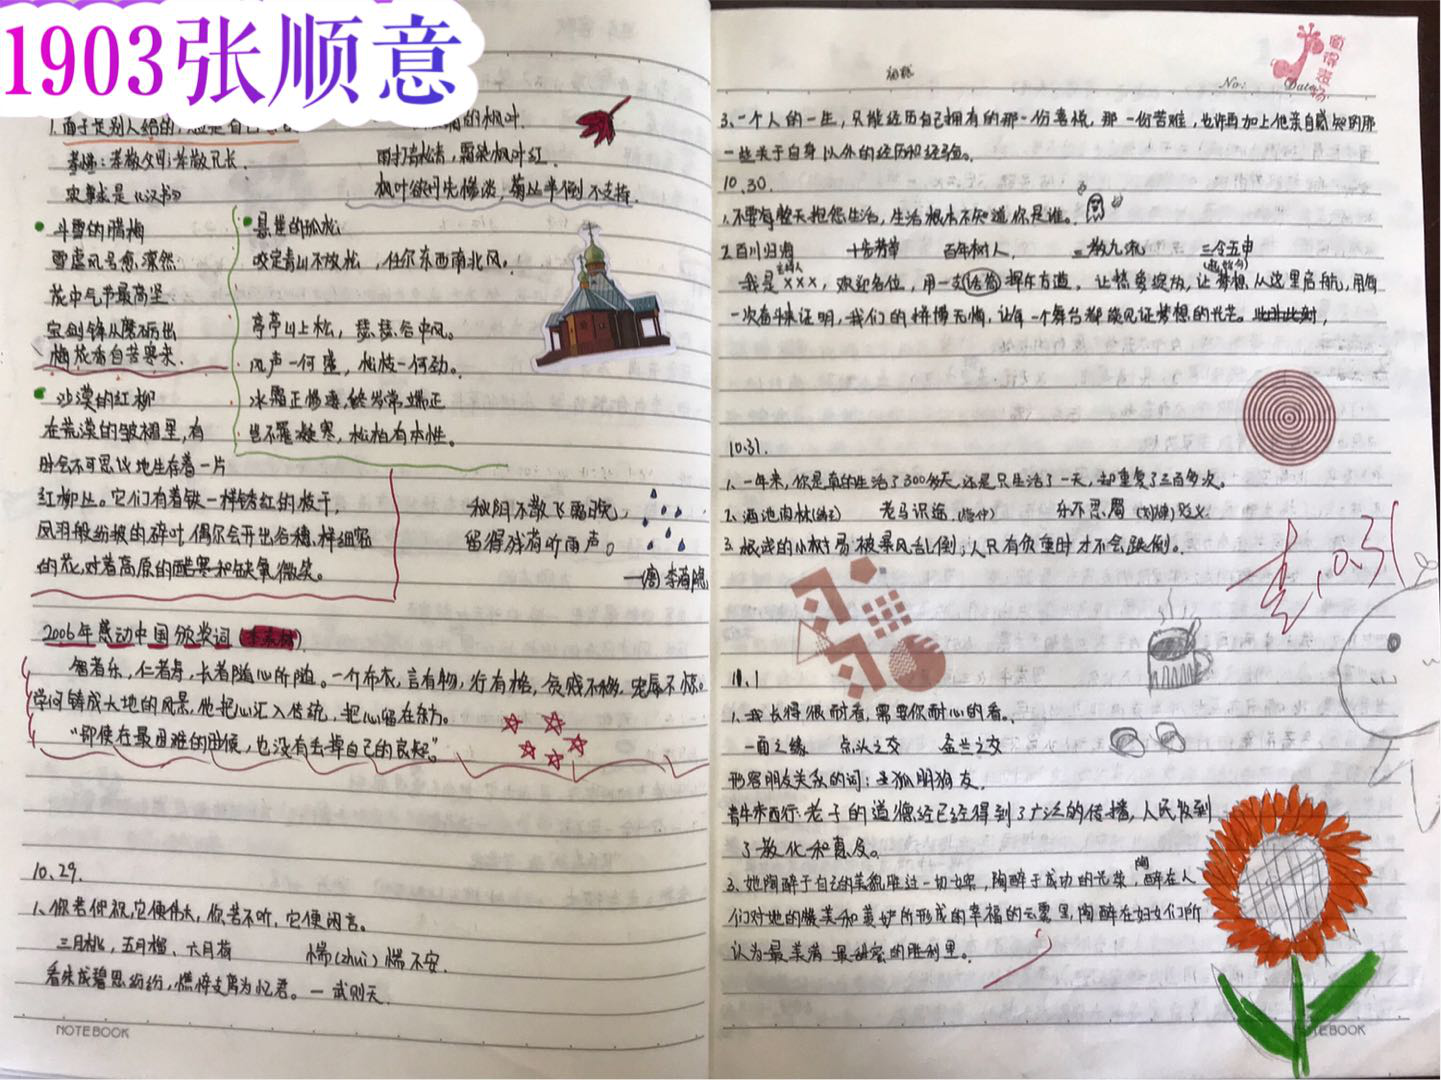 1903张顺意
1.面子是别人给的,脸是自己
的枫叶.
孝悌:孝敬父母;尊敬兄长.
雨打青松青,霜染枫叶红
史事就是《汉书》
枫叶欲月先惨淡,菊丛半倒不支持.
斗雪的腊梅
雪虐风号愈凛然
花中气节最高坚
宝剑锋从磨砺出
梅花香自苦寒来.
悬崖的孤松
咬定青山不放松,任尔东西南北风。
亭亭山上松,瑟瑟谷中风。
风声一何盛,松枝一何劲。
冰霜正惨凄,终岁常端正
岂不罹凝寒,松柏有本性。
沙漠的红柳
在荒漠的皱褶里,有
时会不可思议地生存着一片
红柳丛。它们有着铁一样锈红的枝干,
风羽般纷披的碎叶,偶尔会开出谷穗样细密
的花,对着高原的酷寒和缺氧微笑。
秋阴不散飞霜晚,
留得残荷听雨声。
——(唐)李商隐
2006年感动中国颁奖词(季羡林)
智者乐,仁者寿,长者随心所随。一介布衣,言有物,行有格,贫贱不移,宠辱不惊。
学问铸成大地的风景,他把心汇入传统,把心留在东方。
"即使在最困难的时候,也没有丢掉自己的良知。"
10.29.
1、你若仰视,它便伟大,你若不听,它便闲言。
三月桃,五月榴、六月荷
惴(zhuì)惴不安.
看朱成碧思纷纷,憔悴支离为忆君。—武则天
NOTEBOOK
No:
Date:
3、一个人的一生,只能经历自己拥有的那一份喜悦,那一份苦难,也许再加上他亲自感知的那
一些关于自身以外的经历和经验。
10.30.
1.不要每整天抱怨生活,生活根本不知道你是谁。
2.百川归海 十步芳草 百年树人 三教九流 三令五申
主持人
我是×××,欢迎各位,用一支话筒挥斥方遒,让梦想从这里启航,用每
一次奋斗来证明,我们的拼搏无悔,让每一个舞台都能见证梦想的光芒。此时此刻,
10.31.
1、一年来,你是真的生活了300多天,还是只生活了一天,却重复了三百多次。
2.酒池肉林(纣王) 老马识途(管仲) 乐不思蜀(刘禅)贬义.
3.根浅的小树易被暴风乱倒;人只有负重时才不会跌倒。
10.31
11.1
1、我长得很耐看,需要你耐心的看。
一面之缘 点头之交 金兰之交
形容朋友关系的词:狐朋狗友.
青牛西行:老子的道德经已经得到了广泛的传播,人民收到
了教化和惠及。
3、她陶醉于自己的美貌胜过一切女,陶醉于成功的光荣,陶醉在人
们对她的赞美和羡妒所形成的幸福的云雾里,陶醉在妇女们所
认为最美满最甜蜜的胜利里。
NOTEBOOK